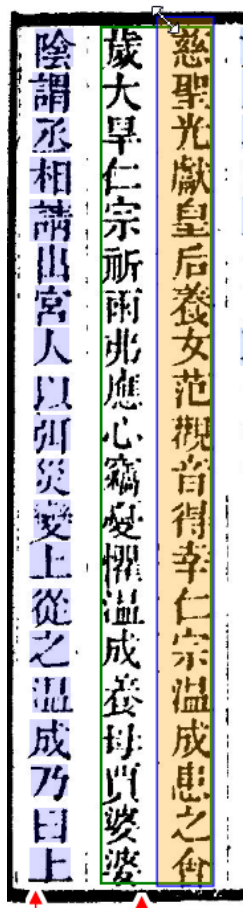 慈聖光獻皇后養女范觀音得幸仁宗温成患之會
歲大旱仁宗祈雨弗應心竊憂懼温成養母賈婆婆
陰謂丞相請出宮人以弭災變上從之温成乃曰上